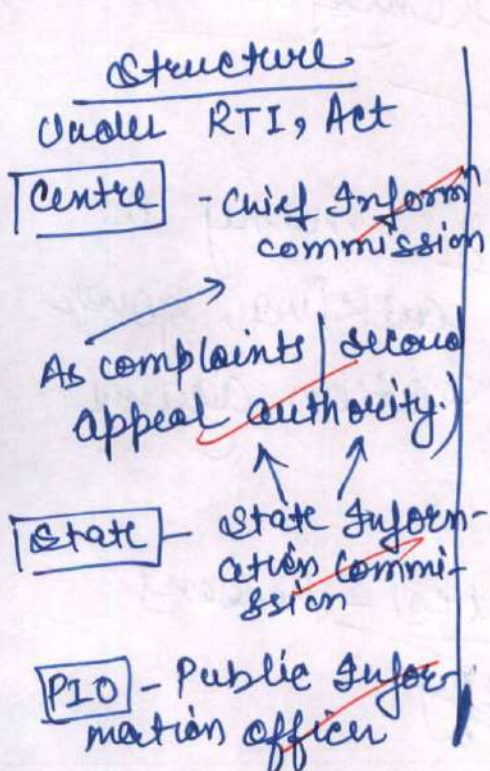 Structure
Under RTI, Act
Centre - Chief Inform
commission
As complaints | second
appeal authority.)
State - State Inform-
ation Commi-
ssion
PIO - Public Infor-
mation officer